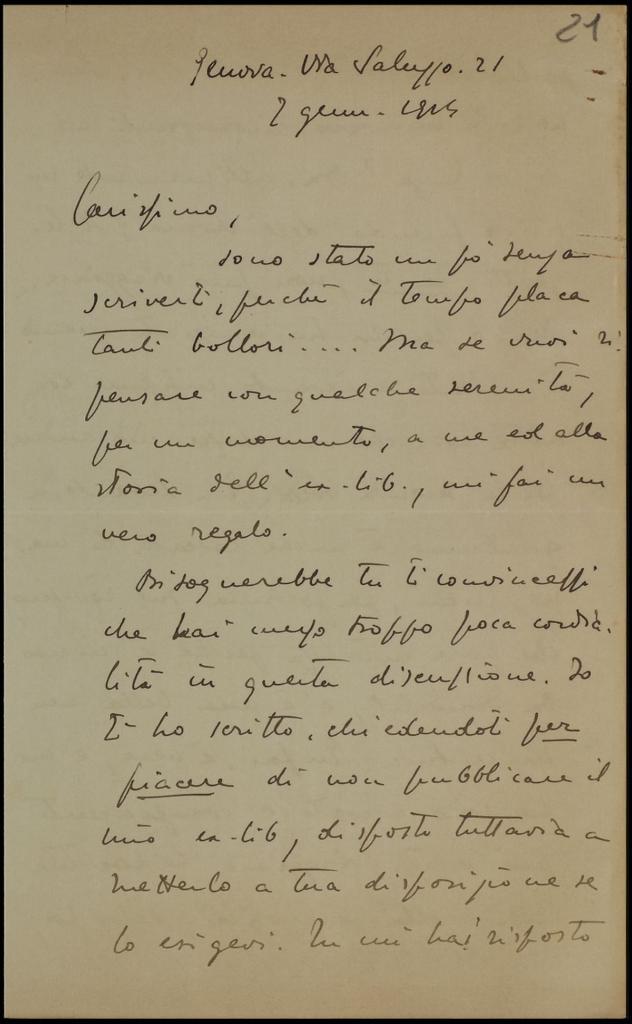 21
Genova - Via Saluzzo. 21
7 genn. - 1915
Carissimo,
sono stato un pò senza
scriverti, perchè il tempo placa
tanti bollori.... Ma se vuoi ri-
pensare con qualche serenità,
per un momento, a me ed alla
storia dell'ex-lib., mi fai un
vero regalo.
Bisognerebbe tu ti convincessi
che hai messo troppo poca cordia-
lità in questa discussione. Io
Ti ho scritto, chiedendoti per
piacere di non pubblicare il
mio ex-lib, disposto tuttavia a
metterlo a tua disposizione se
lo esigevi. Tu mi hai risposto